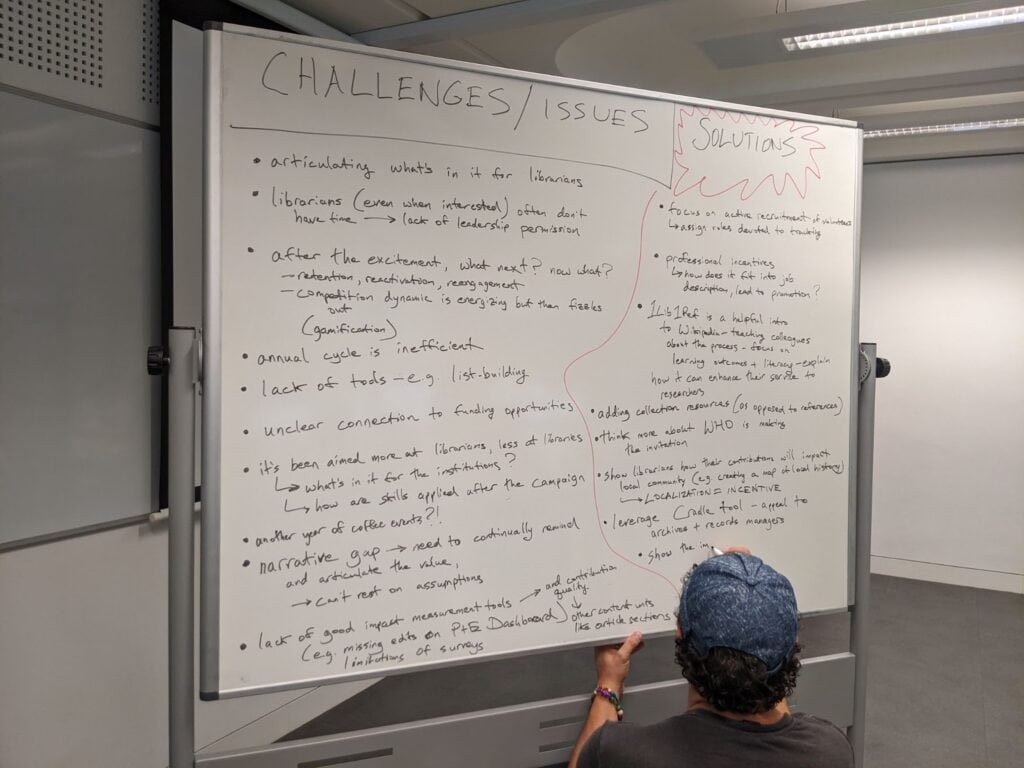 CHALLENGES/ISSUES
• articulating what's in it for librarians
• librarians (even when interested) often don't
have time → lack of leadership permission
• after the excitement, what next? now what?
- retention, reactivation, reengagement
- competition dynamic is energizing but then fizzles
out
(gamification)
• annual cycle is inefficient
• lack of tools - e.g. list-building
• unclear connection to funding opportunities
• it's been aimed more at librarians, less at libraries
↳ what's in it for the institutions?
↳ how are skills applied after the campaign
• another year of coffee events?!
• narrative gap → need to continually remind
and articulate the value,
→ can't rest on assumptions
• lack of good impact measurement tools → and contribution
quality.
(e.g. missing edits on P+E Dashboard) ↓ other content units
limitations of surveys
like article sections
SOLUTIONS
• focus on active recruitment of volunteers
↳ assign roles devoted to tracking
• professional incentives
↳ how does it fit into job
description, lead to promotion?
• 1Lib1Ref is a helpful intro
to Wikipedia - teaching colleagues
about the process - focus on
learning outcomes + literacy - explain
how it can enhance their service to
researchers
• adding collection resources (as opposed to references)
• think more about WHO is making
the invitation
• show librarians how their contributions will impact
local community (e.g. creating a map of local history)
↳ LOCALIZATION = INCENTIVE
• leverage Cradle tool - appeal to
archives + records managers
• show the im